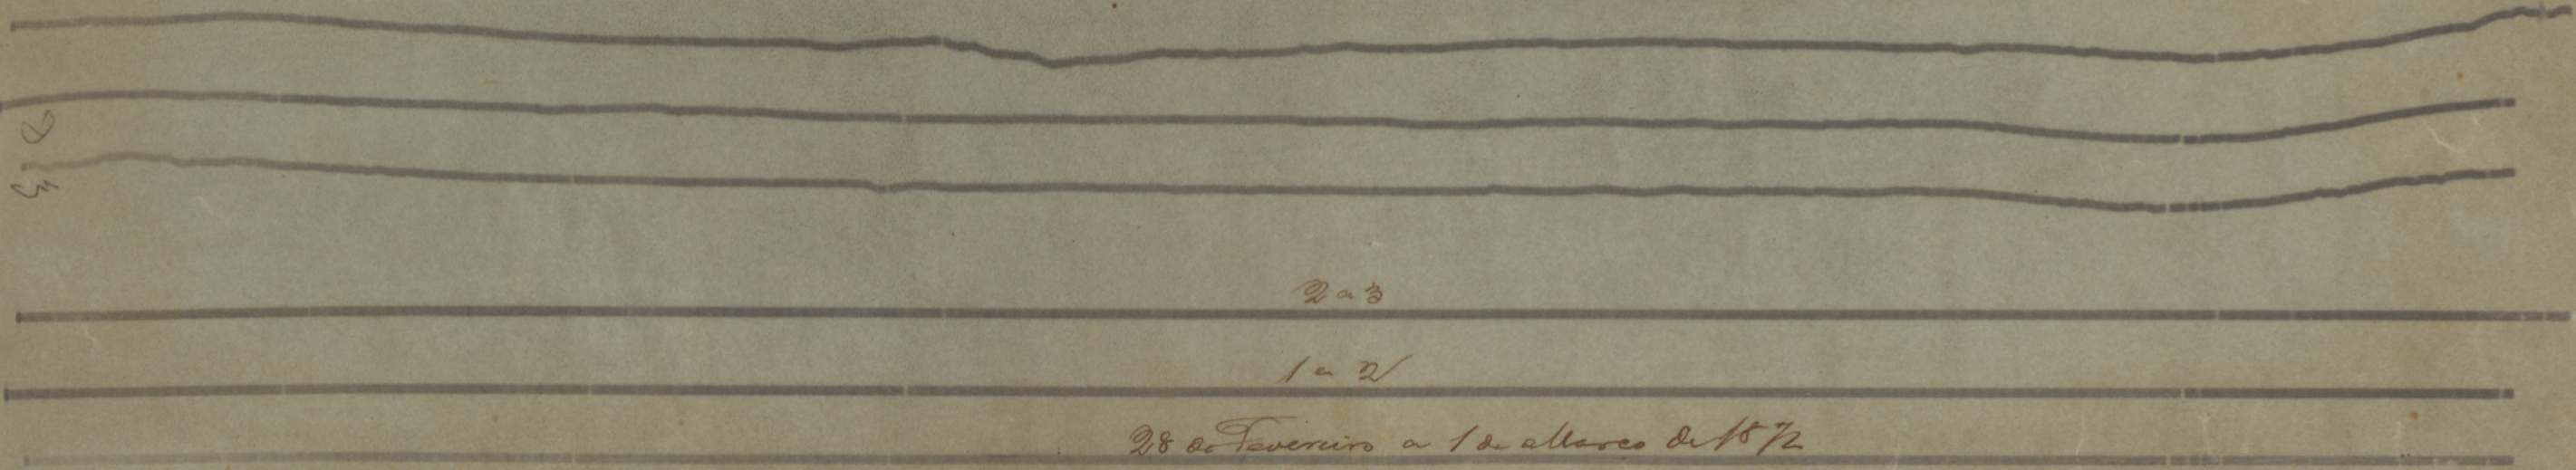 2 a 3
1 a 2
28 de Fevereiro a 1 de Março de 1872